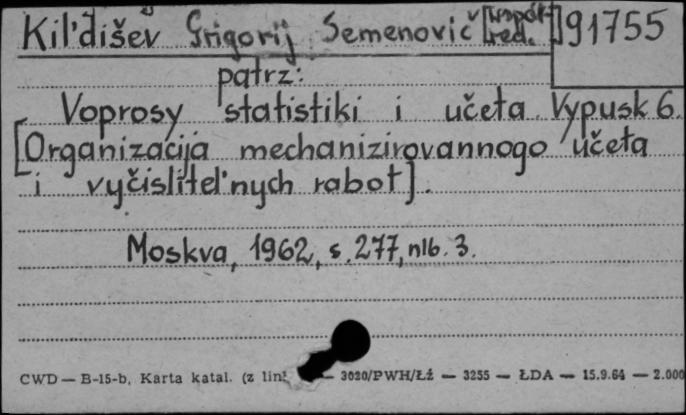 Kil'dišev Grigorij Semenovič [współ- red.] 91755
patrz:
Voprosy statistiki i učeta. Vypusk 6.
[Organizacija mechanizirovannogo učeta
i vyčislitel'nych rabot].
Moskva, 1962, s. 277, nlb. 3.
CWD — B-15-b, Karta katal. (z lin. — 3020/PWH/Łź — 3255 — ŁDA — 15.9.64 — 2.000